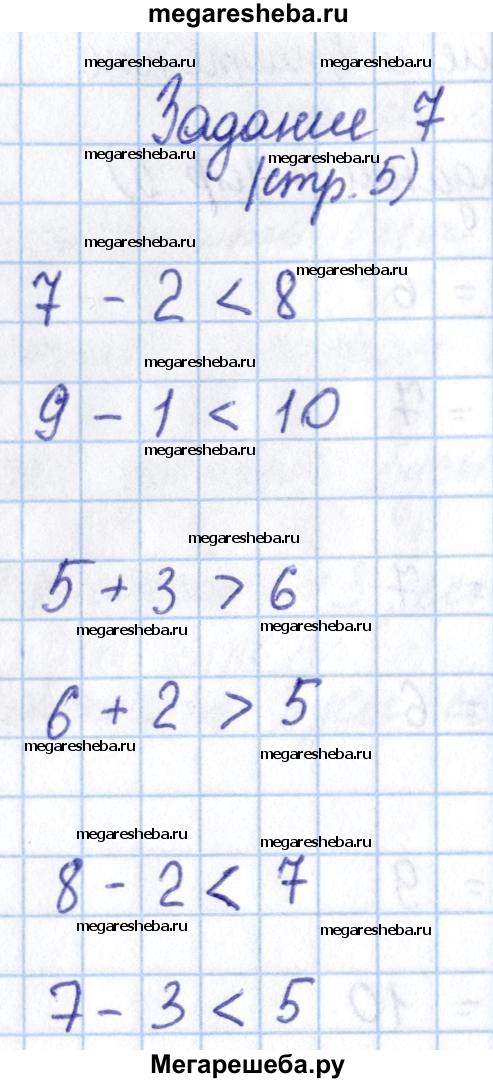 megaresheba.ru
megaresheba.ru megaresheba.ru
Задание 7
megaresheba.ru megaresheba.ru
(стр. 5)
megaresheba.ru megaresheba.ru
7 - 2 < 8
megaresheba.ru
9 - 1 < 10
megaresheba.ru
megaresheba.ru
5 + 3 > 6
megaresheba.ru megaresheba.ru
6 + 2 > 5
megaresheba.ru megaresheba.ru
megaresheba.ru megaresheba.ru
8 - 2 < 7
megaresheba.ru megaresheba.ru
7 - 3 < 5
Мегарешеба.ру